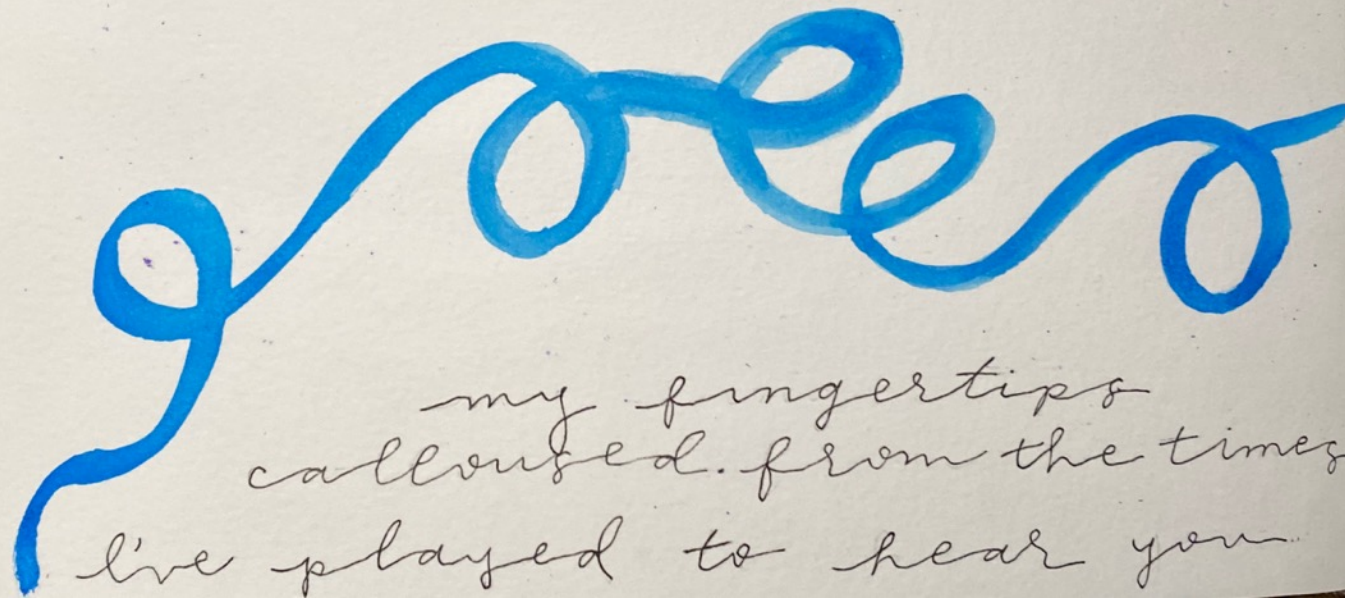 my fingertips
calloused. from the times
I've played to hear you